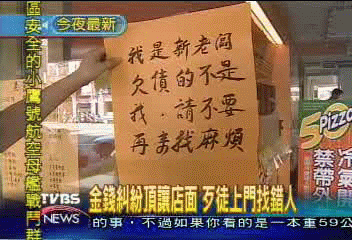 今夜最新
區安全的小鷹號航空母艦戰鬥群
我是新老闆
欠債的不是
我．請不要
再來找我麻煩
5 Pizza
冷氣
禁帶外
金錢糾紛頂讓店面 歹徒上門找錯人
TVBS
NEWS
的事，不過如果你看的是一本重59公